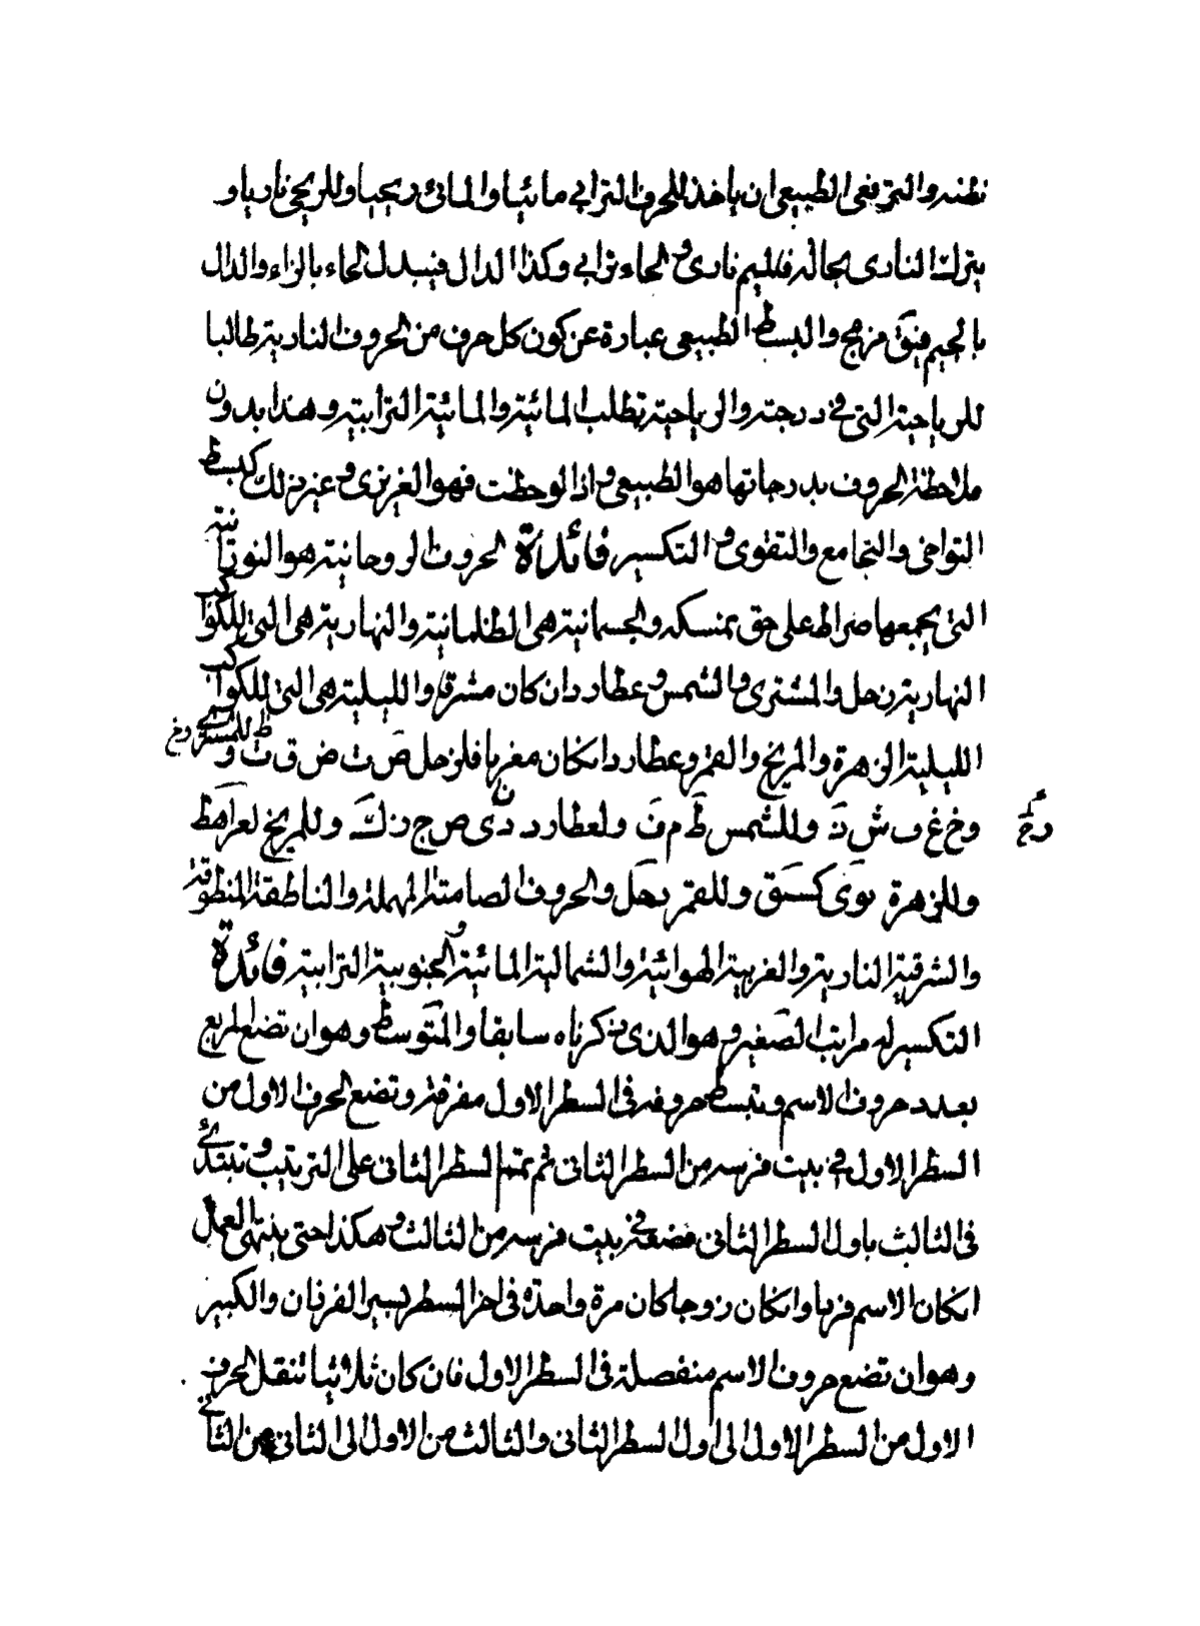 نظنه والترفعى الطبيعى ان ياخذ للحرف الترابي مائيا والمائى ريحيا وللريحى ناريا و
يترك النارى بحاله فالميم نارى و الحاء ترابي وكذا الدال فتبدل الحاء بالزاء والدال
بالجيم فبقى مزمج والبسط الطبيعى عبارة عن كون كل حرف من الحروف النارية طالبا
للرياحية التى فى درجته والرياحية تطلب المائية والمائية الترابية وهذا بدون
ملاحظة الحروف بدرجاتها هو الطبيعى و اذا لوحظت فهو الغريزى و غير ذلك كبسط
التواخى والتجامع والتقوى و التكسير فائدة الحروف الروحانية هو النورانية
التى يجمعها صراط على حق نمسكه والجسمانية هى الظلمانية والنهارية هى التى للكواكب
النهارية زحل والمشترى والشمس و عطارد ان كان مشرقا والليلية هى التى للكواكب
الليلية الزهرة والمريخ والقمر وعطارد انكان مغربا فلزحل ص ت ض ق ث و للمشترى
وخ غ ف ش ذ وللشمس ط م ف ولعطارد د ى ص ج ز ك وللمريخ
وللزهرة وللقمر والحروف الصامتة المهملة والناطقة المنطوقة
والشرقية النارية والغربية الهوائية والشمالية المائية و الجنوبية الترابية فائدة
التكسير له مراتب الصغير و هو الذى ذكرناه سابقا والمتوسط وهو ان تضع المربع
بعدد حروف الاسم و تبسط حروفه فى السطر الاول مفرقة و تضع الحرف الاول من
السطر الاول فى بيت فرسه من السطر الثانى ثم تتم السطر الثانى على الترتيب و تبتدئ
فى الثالث باول السطر الثانى فضعه فى بيت فرسه من الثالث و هكذا حتى ينتهى العمل
انكان الاسم فردا وانكان زوجا كان مرة واحدة فى اخر السطر بسير الفرزان والكبير
وهو ان تضع حروف الاسم منفصلة فى السطر الاول فان كان ثلاثيا تنقل الحرف
الاول من السطر الاول الى اول السطر الثانى والثالث من الاول الى الثانى من الثانى